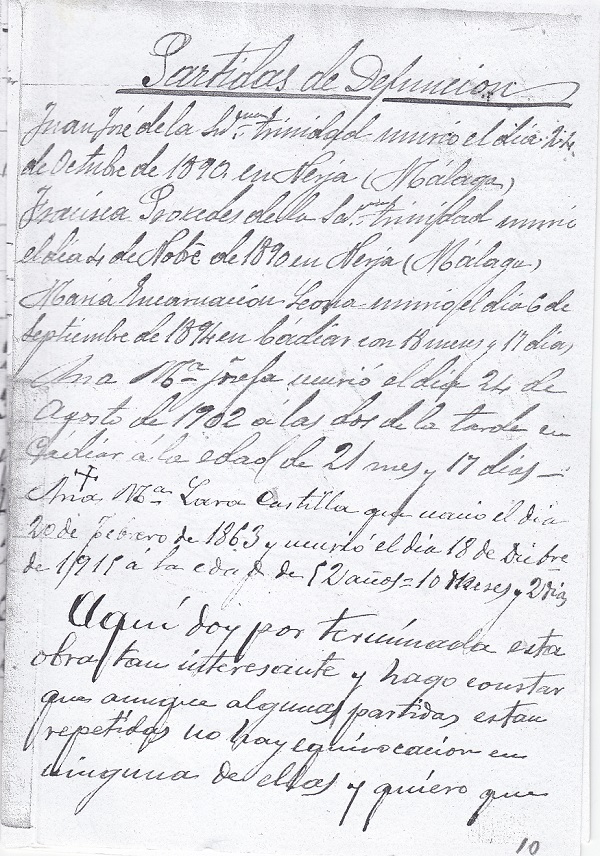 Partidas de Defunción
Juan José de la Sa.^ntma Trinidad murió el día 24
de Octubre de 1890 en Nerja (Málaga)
Francisca Proxedes de la Sa.^ntma Trinidad murió
el día 4 de Nobe de 1890 en Nerja (Málaga)
María Encarnación murió el día 6 de
Septiembre de 1894 en Cádiar con 18 meses y 17 días
Ana Mª Josefa murió el día 24 de
Agosto de 1902 á las dos de la tarde en
Cádiar á la edad de 21 mes y 17 días
Ana Mª Lara Castilla que nació el día
20 de Febrero de 1863 y murió el día 18 de Dicbre
de 1915 á la edad de 52 años = 10 meses y 2 días
Aquí doy por terminada esta
obra tan interesante y hago constar
que aunque algunas partidas estan
repetidas no hay equivocación en
ninguna de ellas y quiero que
10